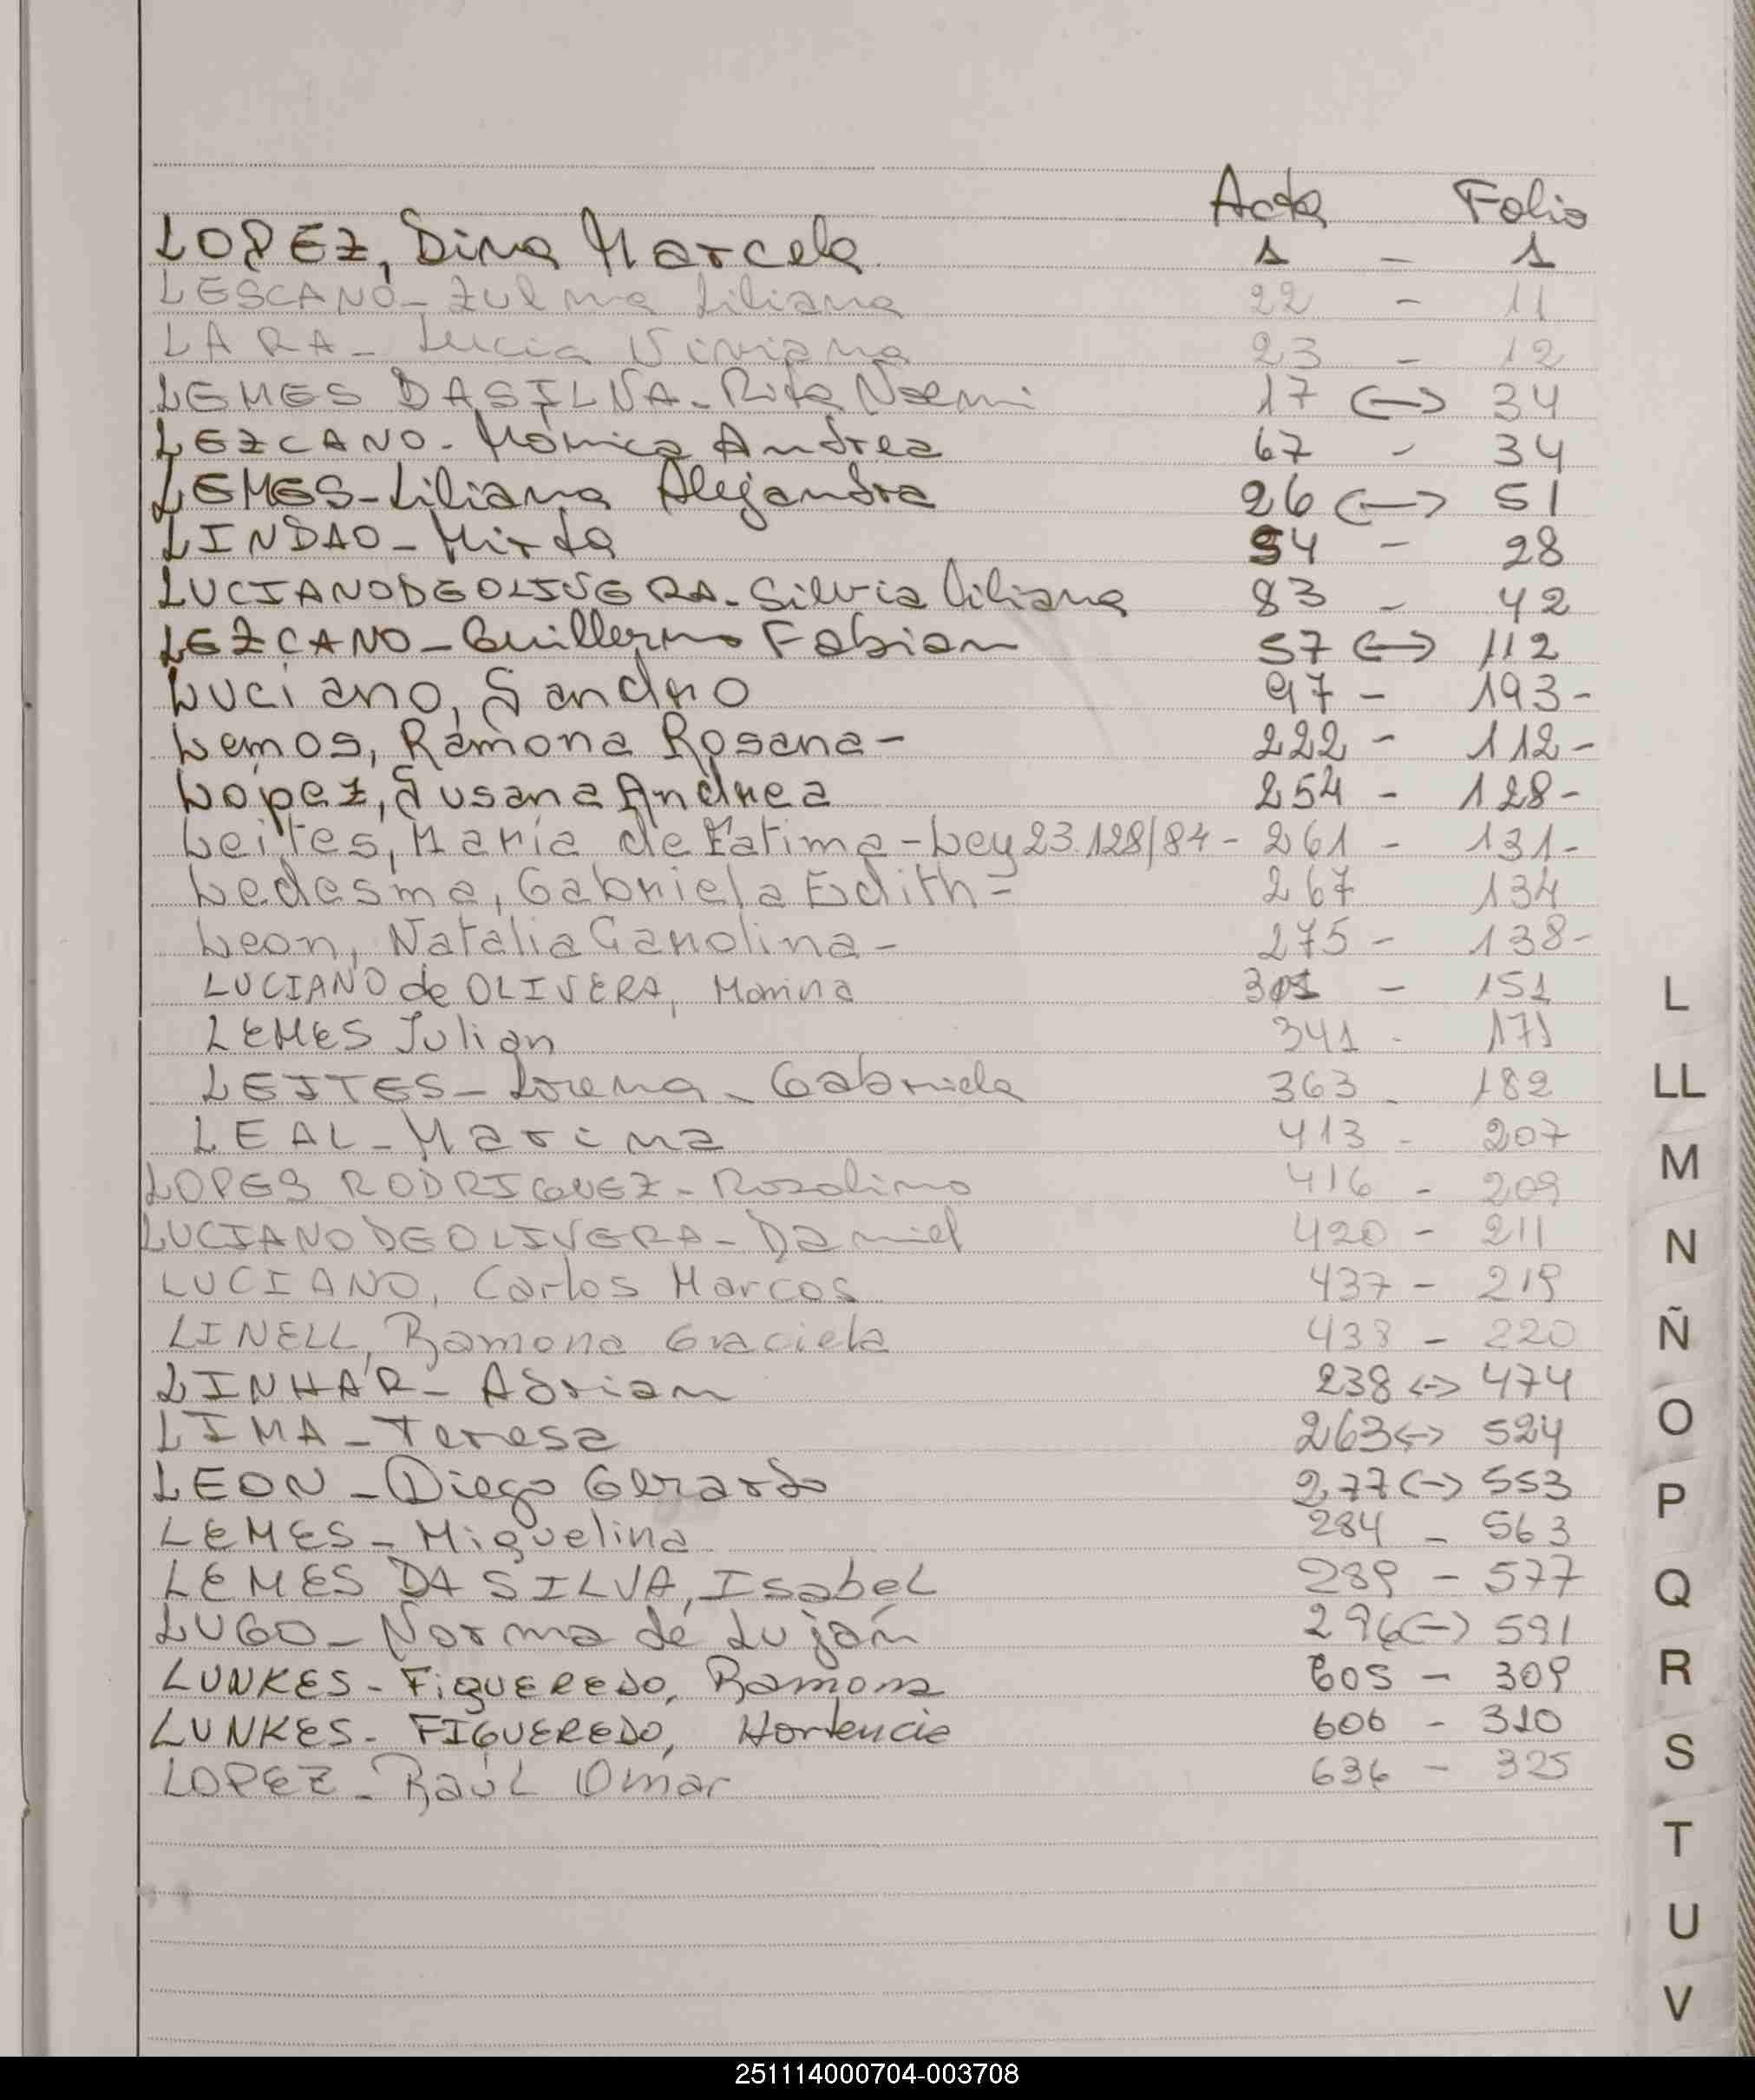 Acta - Folio
LOPEZ, Dina Marcela 1 - 1
LESCANO - Zulma Liliana 22 - 11
LARA - Lucia Viviana 23 - 12
LEMES DA SILVA - Rita Noemi 17 <-> 34
LEZCANO - Mónica Andrea 67 - 34
LEMES - Liliana Alejandra 26 <-> 51
LINDAO - Mirta 54 - 28
LUCIANO DE OLIVERA - Silvia Liliana 83 - 42
LEZCANO - Guillermo Fabian 57 <-> 112
Luciano, Sandro 97 - 193 -
Lemos, Ramona Rosana - 222 - 112 -
Lopez, Susana Andrea 254 - 128 -
Leites, María de Fatima - Ley 23.128/84 - 261 - 131 -
Ledesma, Gabriela Edith = 267 134
Leon, Natalia Carolina - 275 - 138 -
LUCIANO de OLIVERA, Marina 301 - 151
LEMES Julian 341 - 171
LEITES - Lorena - Gabriela 363 - 182
LEAL - Marina 413 - 207
LOPES RODRIGUEZ - Rozalino 416 - 209
LUCIANO DE OLIVERA - Daniel 420 - 211
LUCIANO, Carlos Marcos 437 - 219
LINELL, Ramona Graciela 438 - 220
LINHAR - Adrian 238 <-> 474
LIMA - Teresa 263 <-> 524
LEON - Diego Gerardo 277 <-> 553
LEMES - Miguelina 284 - 563
LEMES DA SILVA, Isabel 289 - 577
LUGO - Norma de Luján 296 <-> 591
LUNKES - FiguEREDO, Ramona 605 - 309
LUNKES - FIGUEREDO, Hortencia 606 - 310
LOPEZ - Raúl Omar 636 - 325
L
LL
M
N
Ñ
O
P
Q
R
S
T
U
V
251114000704-003708